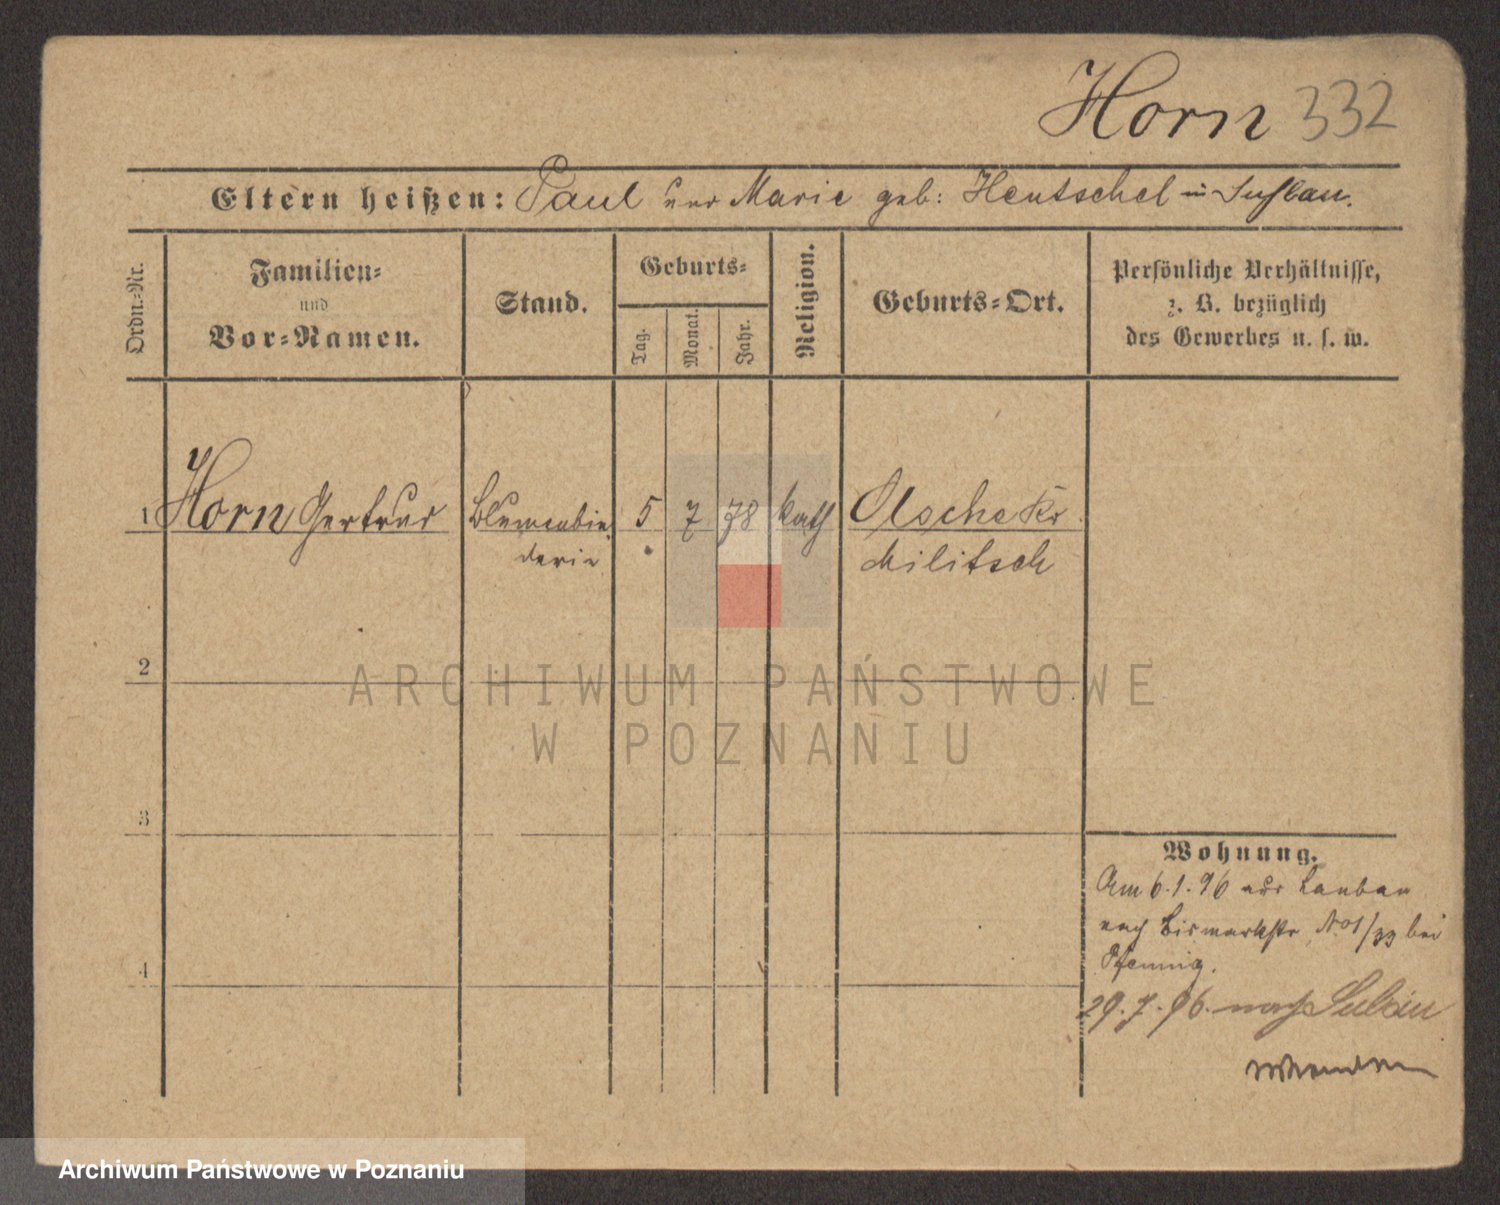 Horn 332
Eltern heißen: Paul und Marie geb: Hentschel in
Ordn.-Nr.
Familien-
und
Vor-Namen.
Stand.
Geburts-
Tag.
Monat.
Jahr.
Religion.
Geburts-Ort.
Persönliche Verhältnisse,
z. B. bezüglich
des Gewerbes u. s. w.
1 Horn Gertrud Blumenbin 5 7 78 kath Olsche Kr
derin Militsch
2
ARCHIWUM PAŃSTWOWE
W POZNANIU
3
Wohnung.
Am 6.1.96 aus Lauban
nach Bismarkstr No 1/33 bei
Pfennig.
4
29.7.96. nach
Archiwum Państwowe w Poznaniu